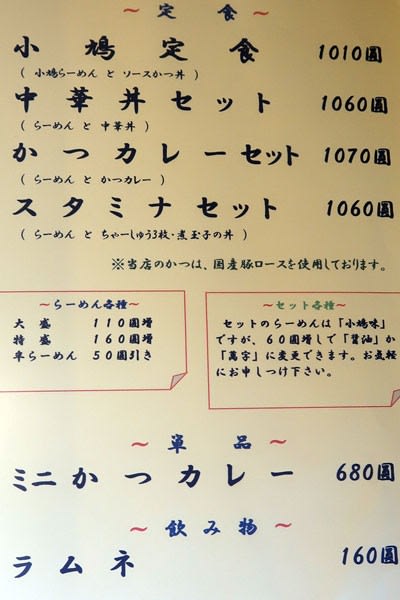 ～ 定 食 ～
小 鳩 定 食 1010圓
( 小鳩らーめん と ソースかつ丼 )
中 華 丼 セ ッ ト 1060圓
( らーめん と 中華丼 )
か つ カ レ ー セット 1070圓
( らーめん と かつカレー )
ス タ ミ ナ セ ッ ト 1060圓
( らーめん と ちゃーしゅう3枚・煮玉子の丼 )
※当店のかつは、国産豚ロースを使用しております。
～らーめん各種～
大 盛 110圓増
特 盛 160圓増
半らーめん 50圓引き
～セット各種～
セットのらーめんは「小鳩味」
ですが、60圓増しで「醤油」か
「萬字」に変更できます。お気軽
にお申しつけ下さい。
～ 単 品 ～
ミニ か つ カ レ ー 680圓
～ 飲 み 物 ～
ラ ム ネ 160圓